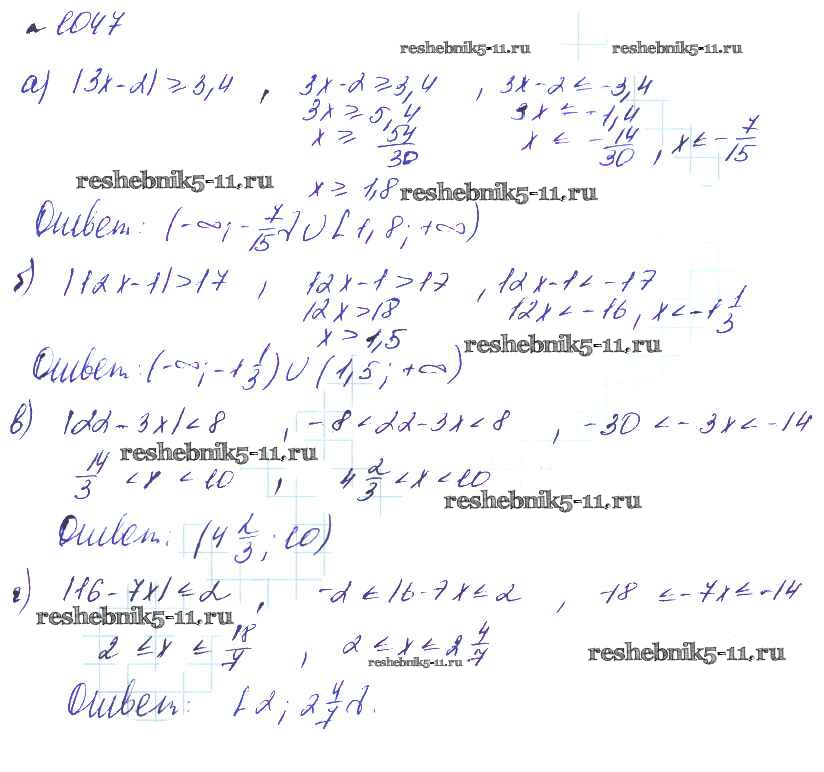 № 1047
reshebnik5-11.ru reshebnik5-11.ru
а) |3x-2| ≥ 3,4 , 3x-2 ≥ 3,4 , 3x-2 ≤ -3,4
3x ≥ 5,4 3x ≤ -1,4
x ≥ 54/30 x ≤ -14/30 , x ≤ -7/15
reshebnik5-11.ru x ≥ 1,8 reshebnik5-11.ru
Ответ: (-∞; -7/15] ∪ [1,8; +∞)
б) |12x-1| > 17 , 12x-1 > 17 , 12x-1 < -17
12x > 18 12x < -16, x < -1 1/3
x > 1,5 reshebnik5-11.ru
Ответ: (-∞; -1 1/3) ∪ (1,5; +∞)
в) |22-3x| < 8 , -8 < 22-3x < 8 , -30 < -3x < -14
reshebnik5-11.ru
14/3 < x < 10 , 4 2/3 < x < 10
reshebnik5-11.ru
Ответ: (4 2/3; 10)
г) |16-7x| ≤ 2 , -2 ≤ 16-7x ≤ 2 , -18 ≤ -7x ≤ -14
reshebnik5-11.ru
2 ≤ x ≤ 18/7 , 2 ≤ x ≤ 2 4/7
reshebnik5-11.ru reshebnik5-11.ru
Ответ: [2; 2 4/7].